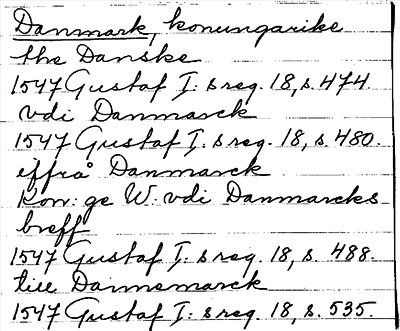 Danmark, konungarike
the Danske
1547 Gustaf I: s reg. 18, s. 474.
vdi Danmarck
1547 Gustaf I: s reg. 18, s. 480.
iffrå Danmarck
Kon: ge W. vdi Danmarcks
breff
1547 Gustaf I: s reg. 18, s. 488.
till Danmemarck
1547 Gustaf I: s reg. 18, s. 535.